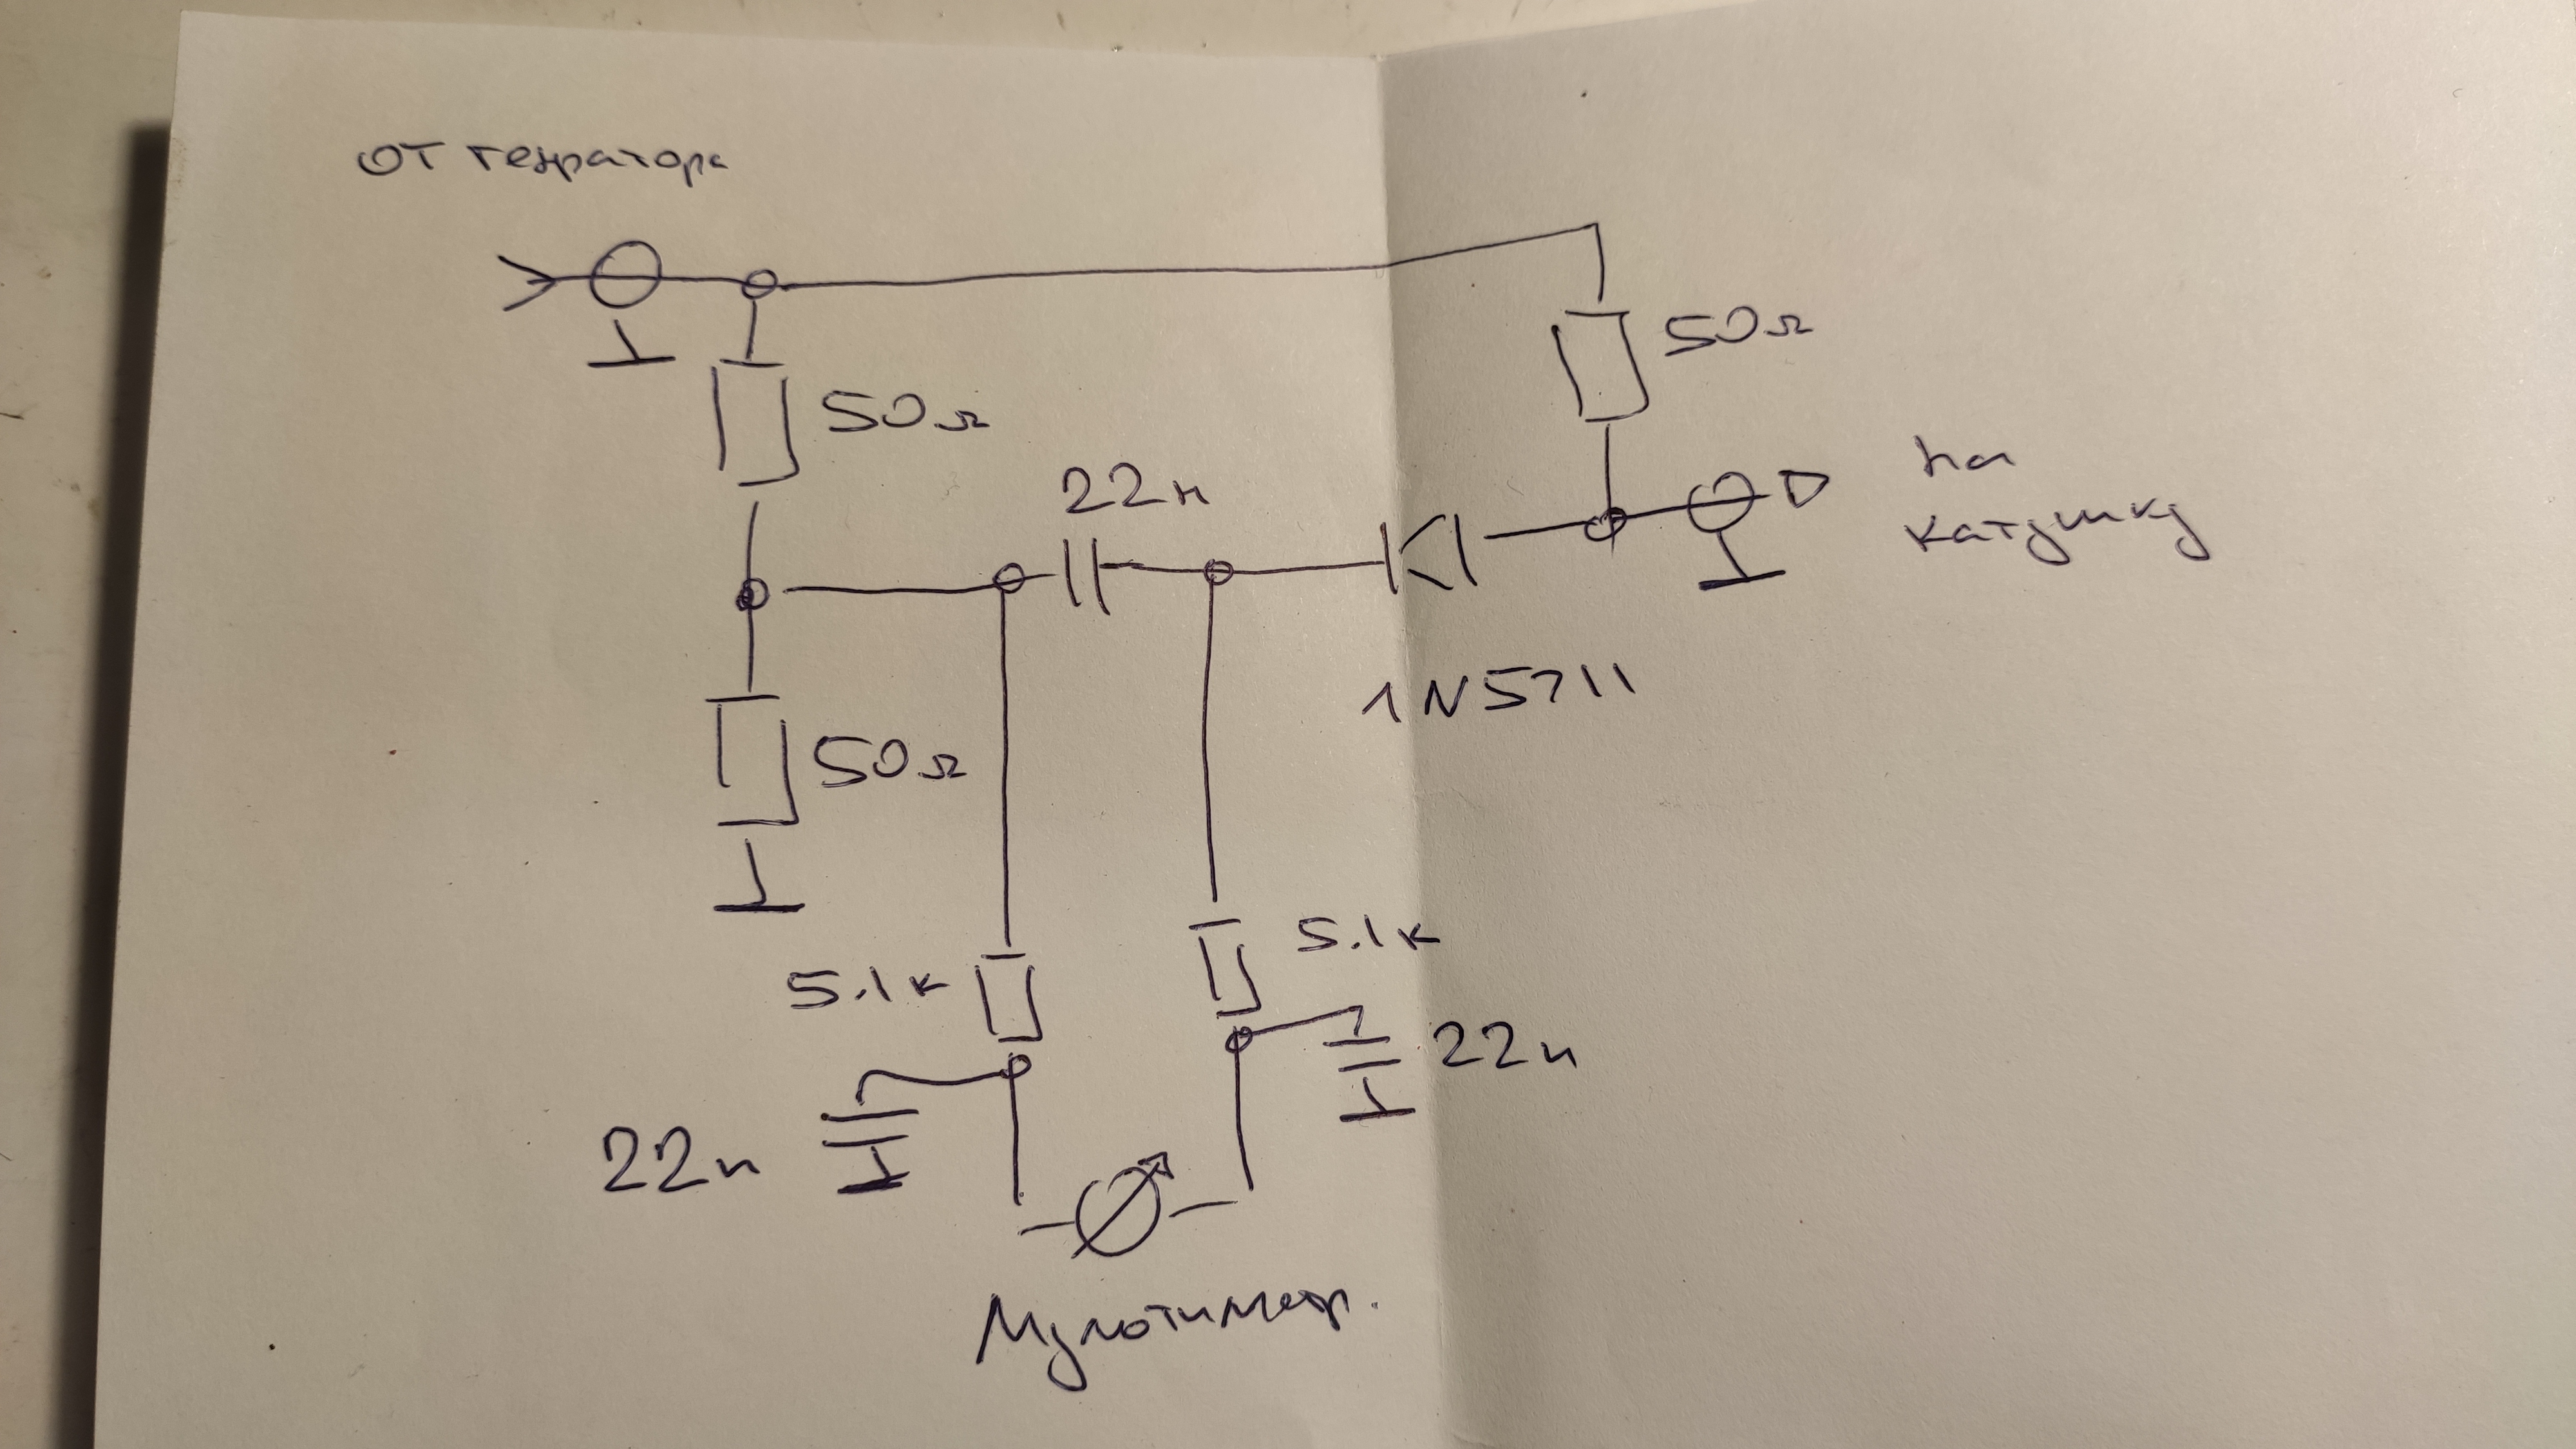 от генратора
50Ω
50Ω
22н
на
катушку
1N5711
50Ω
5.1к
5.1к
22н
22н
Мультиметр.